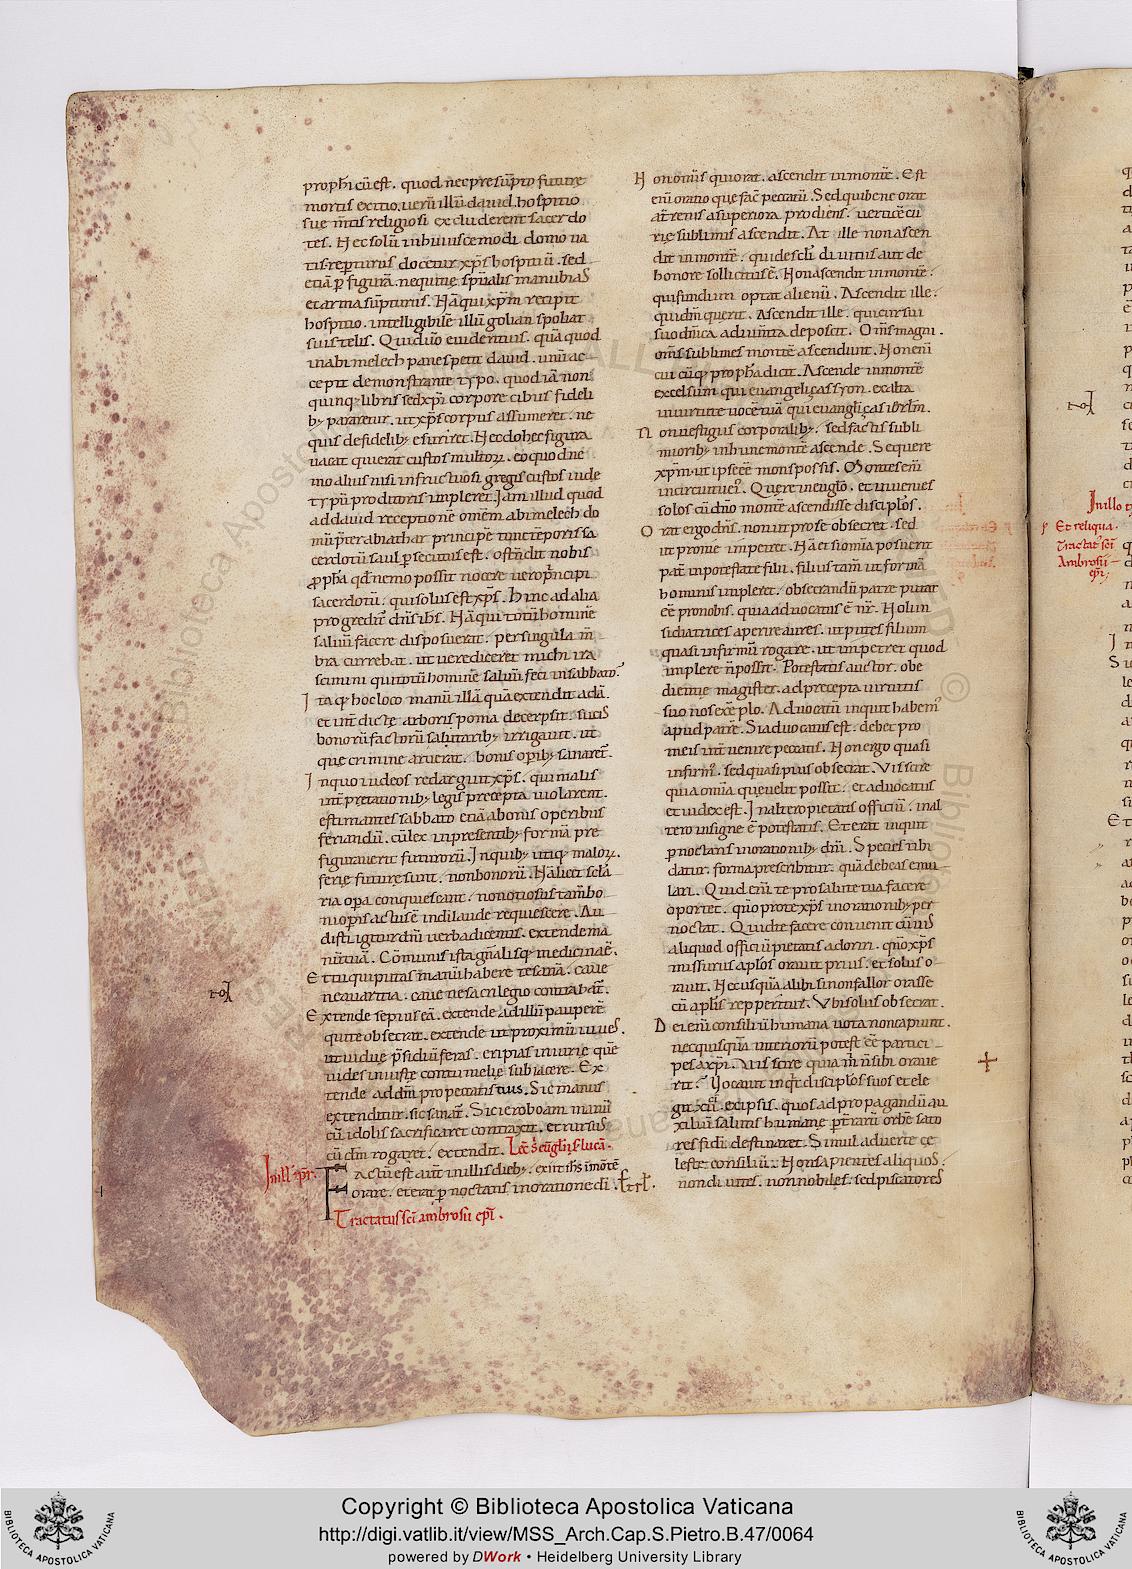 prophī cū est. quod nec presūpto future
mortis exitio. uerū illū dauid. hospitio
sue m̄tis religiosi excluderent sacerdo
tes. Nec solū in huiuscemodi domo na
tis repturus docetur xp̄s hospitiū. sed
etiā p figurā. nequitię spūalis manubias
et arma sūpturus. Nā qui xp̄m recipit
hospitio. intelligibilē illū golian spoliat
suis telis. Quid uō euidentius. quā quod
in abimelech panes petit dauid. unū ac
cepit demonstrante typo. quod iā non
quinq; libris sed xp̄i corpore cibus fideli
b; pararetur. ut xp̄i corpus assumeret. ne
quis de fidelib; esuriret. Nec do hec figura
uacat qui erat custos mulorꝝ. eo quod ne
mo alius nisi infructuosi gregis custos iude
typū proditoris impleret. Iam illud quod
ad dauid receptionē omēm abimelech do
mū pter abiathar principe tunc tēporis sa
cerdotū saul psecutus est. ostēdit nobis
ppha qd nemo possit nocere uero p̄ncipi
sacerdotū. qui solus est xp̄s. Hinc ad alia
progredit̄ dn̄s ih̄s. Nā qui totū hominē
saluū facere disposuerat. per singula m̄
bra currebat. ut uere diceret michi ira
scimini qui totū hominē saluū feci in sabbato.
Itaq; hoc loco manū illā quā extendit adā.
et int̄dictę arboris poma decerpsit. sucis
bonorū factorū salutarib; irrigauit. ut
que crimine aruerat. bonis opib; sanaret̄.
In quo iudeos redarguit xp̄s. qui malis
int̄pretationib; legis precepta uiolarent.
estimantes sabbato etiā a bonis operibus
feriandū. cū lex in presentib; formā pre
figurauerit futurorū. In quib; utiq; malorꝝ.
ferię future sunt. non bonorū. Nā licet scl̄a
ria opa conquiescant. non otiosus tam̄ bo
ni opis actus ē in di laude requiescere. Au
disti igitur dn̄i uerba dicentis. extende ma
nū tuā. Cōmunis ista gn̄alisq; medicina ē.
Et tu qui putas manū habere te sanā. caue
ne auaritia. caue ne sacrilegio contrahat̄.
Extende sepius eā. extende ad illū pauperē
qui te obsecrat. extende ut proximū iuues.
ut uiduę p̄sidiū feras. eripias iniurię quē
uides iniustę contumelię subiacere. Ex
tende ad dm̄ pro peccatis tuis. Sic manus
extenditur. sic sanat̄. Sic ieroboam manū
cū idolis sacrificaret contraxit. et rursus
cū dm̄ rogaret. extendit. Lec̄ s. eūgl̄ii s. lucā.
In ill̄ tp̄r. Factū est aut̄ in illis dieb;. exiit ih̄s i mōtē
orare. et erat pnoctans in oratione di. Et rl̄.
Tractatus sc̄i ambrosii ep̄i.
Non om̄is qui orat. ascendit in montē. Est
enī oratio que fac̄ peccatū. Sed qui bene orat
at̄renis ad superiora prodiens. uerticē cu
rię sublimis ascendit. At ille non ascen
dit in montē. qui de scl̄i diuitiis aut de
honore sollicitus ē. Non ascendit in montē.
qui fundum optat alienū. Ascendit ille.
qui dm̄ querit. Ascendit ille. qui cursui
suo dn̄ica adium̄ta deposcit. Om̄s magni.
om̄s sublimes montē ascendunt. Non enī
cuicūq; propha dicit. Ascende in montē
excelsum qui euangelizas syon. exalta
in uirtute uocē tuā qui euangl̄izas ihrl̄m.
Non uestigiis corporalib;. sed factis subli
miorib; in hunc montē ascende. Sequere
xp̄m. ut ipse eē mons possis. Montes enī
in circuitu ei'. Quere in euglo. et inuenies
solos cū dn̄o montē ascendisse discipl̄os.
Orat ergo dn̄s. non ut pro se obsecret. sed
ut pro me impetret. Nā et si omīa posuerit
pat̄ in potestate filii. filius tam̄ ut formā
hominis impleret. obsecrandū patrē putat
eē pro nobis. quia aduocatus ē nr̄. Noli in
sidiatrices aperire aures. ut putes filium
quasi infirmū rogare. ut impetret quod
implere n̄ possit. Potestatis auctor. obe
dientię magister. ad precepta uirtutis
suo nos exēplo. Aduocatū inquit habem'
apud patrē. Si aduocatus est. debet pro
meis int̄uenire peccatis. Non ergo quasi
infirm'. sed quasi pius obsecrat. Vis scire
quia omīa que uelit possit. et aduocatus
et iudex est. In altero pietatis officiū. in al
tero insigne ē potestatis. Et erat inquit
pnoctans in orationib; dn̄i. Species tibi
datur. forma prescribitur. quā debeas emu
lari. Quid enī te pro salute tua facere
oportet. qn̄o pro te xp̄s in orationib; per
noctat. Quid te facere conuenit cū uis
aliquod officiū pietatis adoriri. qn̄o xp̄s
missurus apl̄os orauit prius. et solus o
rauit. Nec usquā alibi si non fallor orasse
cū apl̄is reppertur. Vbi solus obsecrat.
Dei enī consiliū humana uota non capiunt.
nec quisquā interiorū potest eē partici
pes xp̄i. Vis scire quia m̄ n̄ sibi oraue
rit. Uocauit inq̄t discipl̄os suos et ele
git xii. ex ipsis. quos ad propagandū au
xiliū salutis humanę p t̄rarū orbē sato
res fidei destinaret. Simul aduerte cę
leste consiliū. Non sapientes aliquos.
non diuites. non nobiles. sed piscatores
In illo t
Et reliqua.
Tractat' sc̄i
Ambrosii
ep̄i;
Copyright © Biblioteca Apostolica Vaticana
http://digi.vatlib.it/view/MSS_Arch.Cap.S.Pietro.B.47/0064
powered by DWork • Heidelberg University Library
BIBLIOTECA APOSTOLICA VATICANA
BIBLIOTECA APOSTOLICA VATICANA